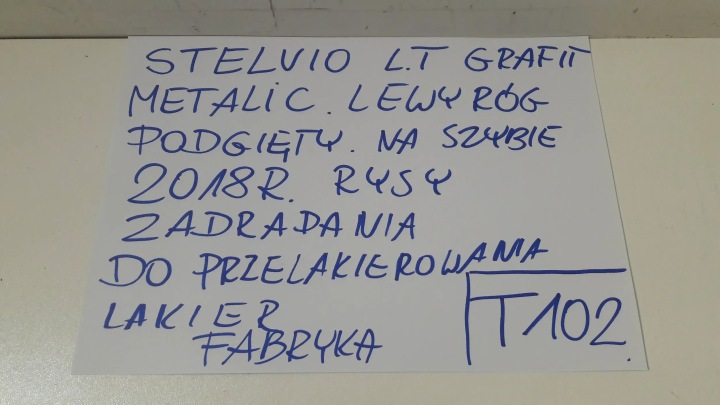 STELVIO L.T GRAFIT
METALIC. LEWY RÓG
PODGIĘTY. NA SZYBIE
2018R. RYSY
ZADRADANIA
DO PRZELAKIEROWANIA
LAKIER
FABRYKA
T102.